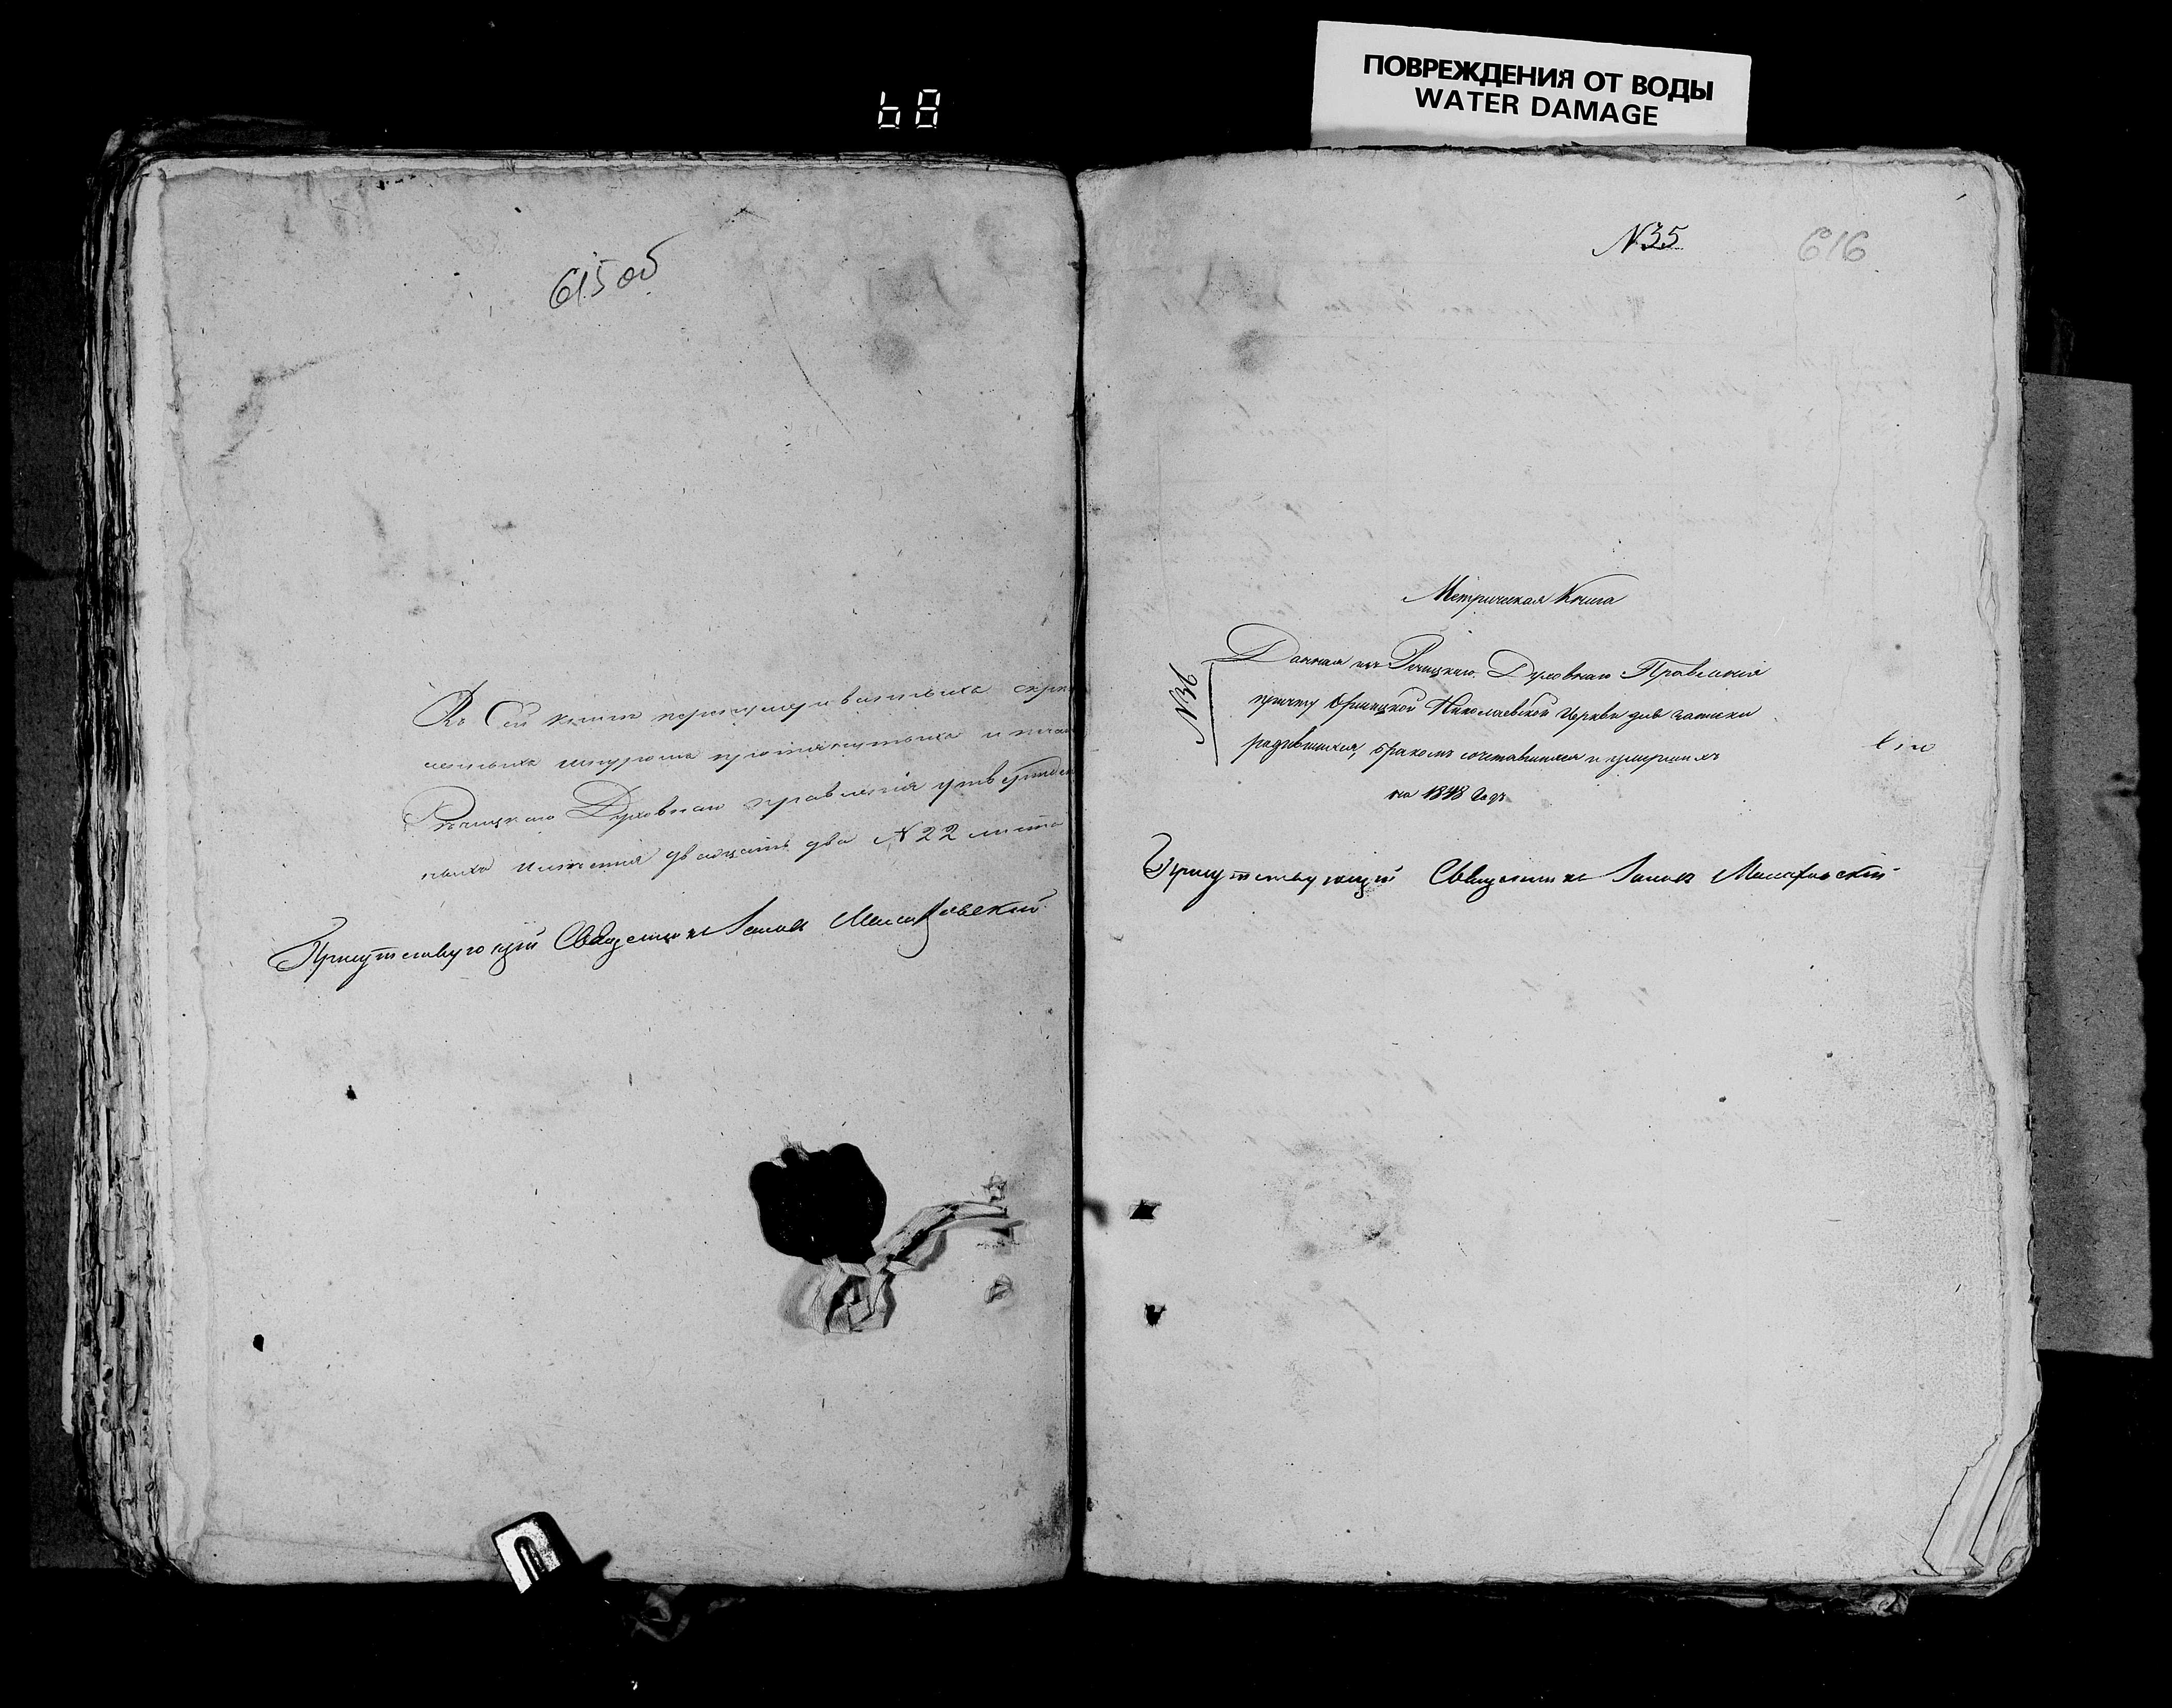 68
ПОВРЕЖДЕНИЯ ОТ ВОДЫ
WATER DAMAGE
615 об
Въ Сей книге перенумерованныхъ скре
шнуромъ протянутыхъ и
Речицкаго Духовнаго правленія утвержден
ныхъ двадцать два № 22 листа
Присутствующій Священникъ
№35
616
Метрическая Книга
№36
Данная изъ Речицкаго Духовнаго Правленія
причту Николаевской Церкви для записки
родившихся, бракомъ сочетавшихся и умершихъ
на 1848 годъ
Присутствующій Священникъ